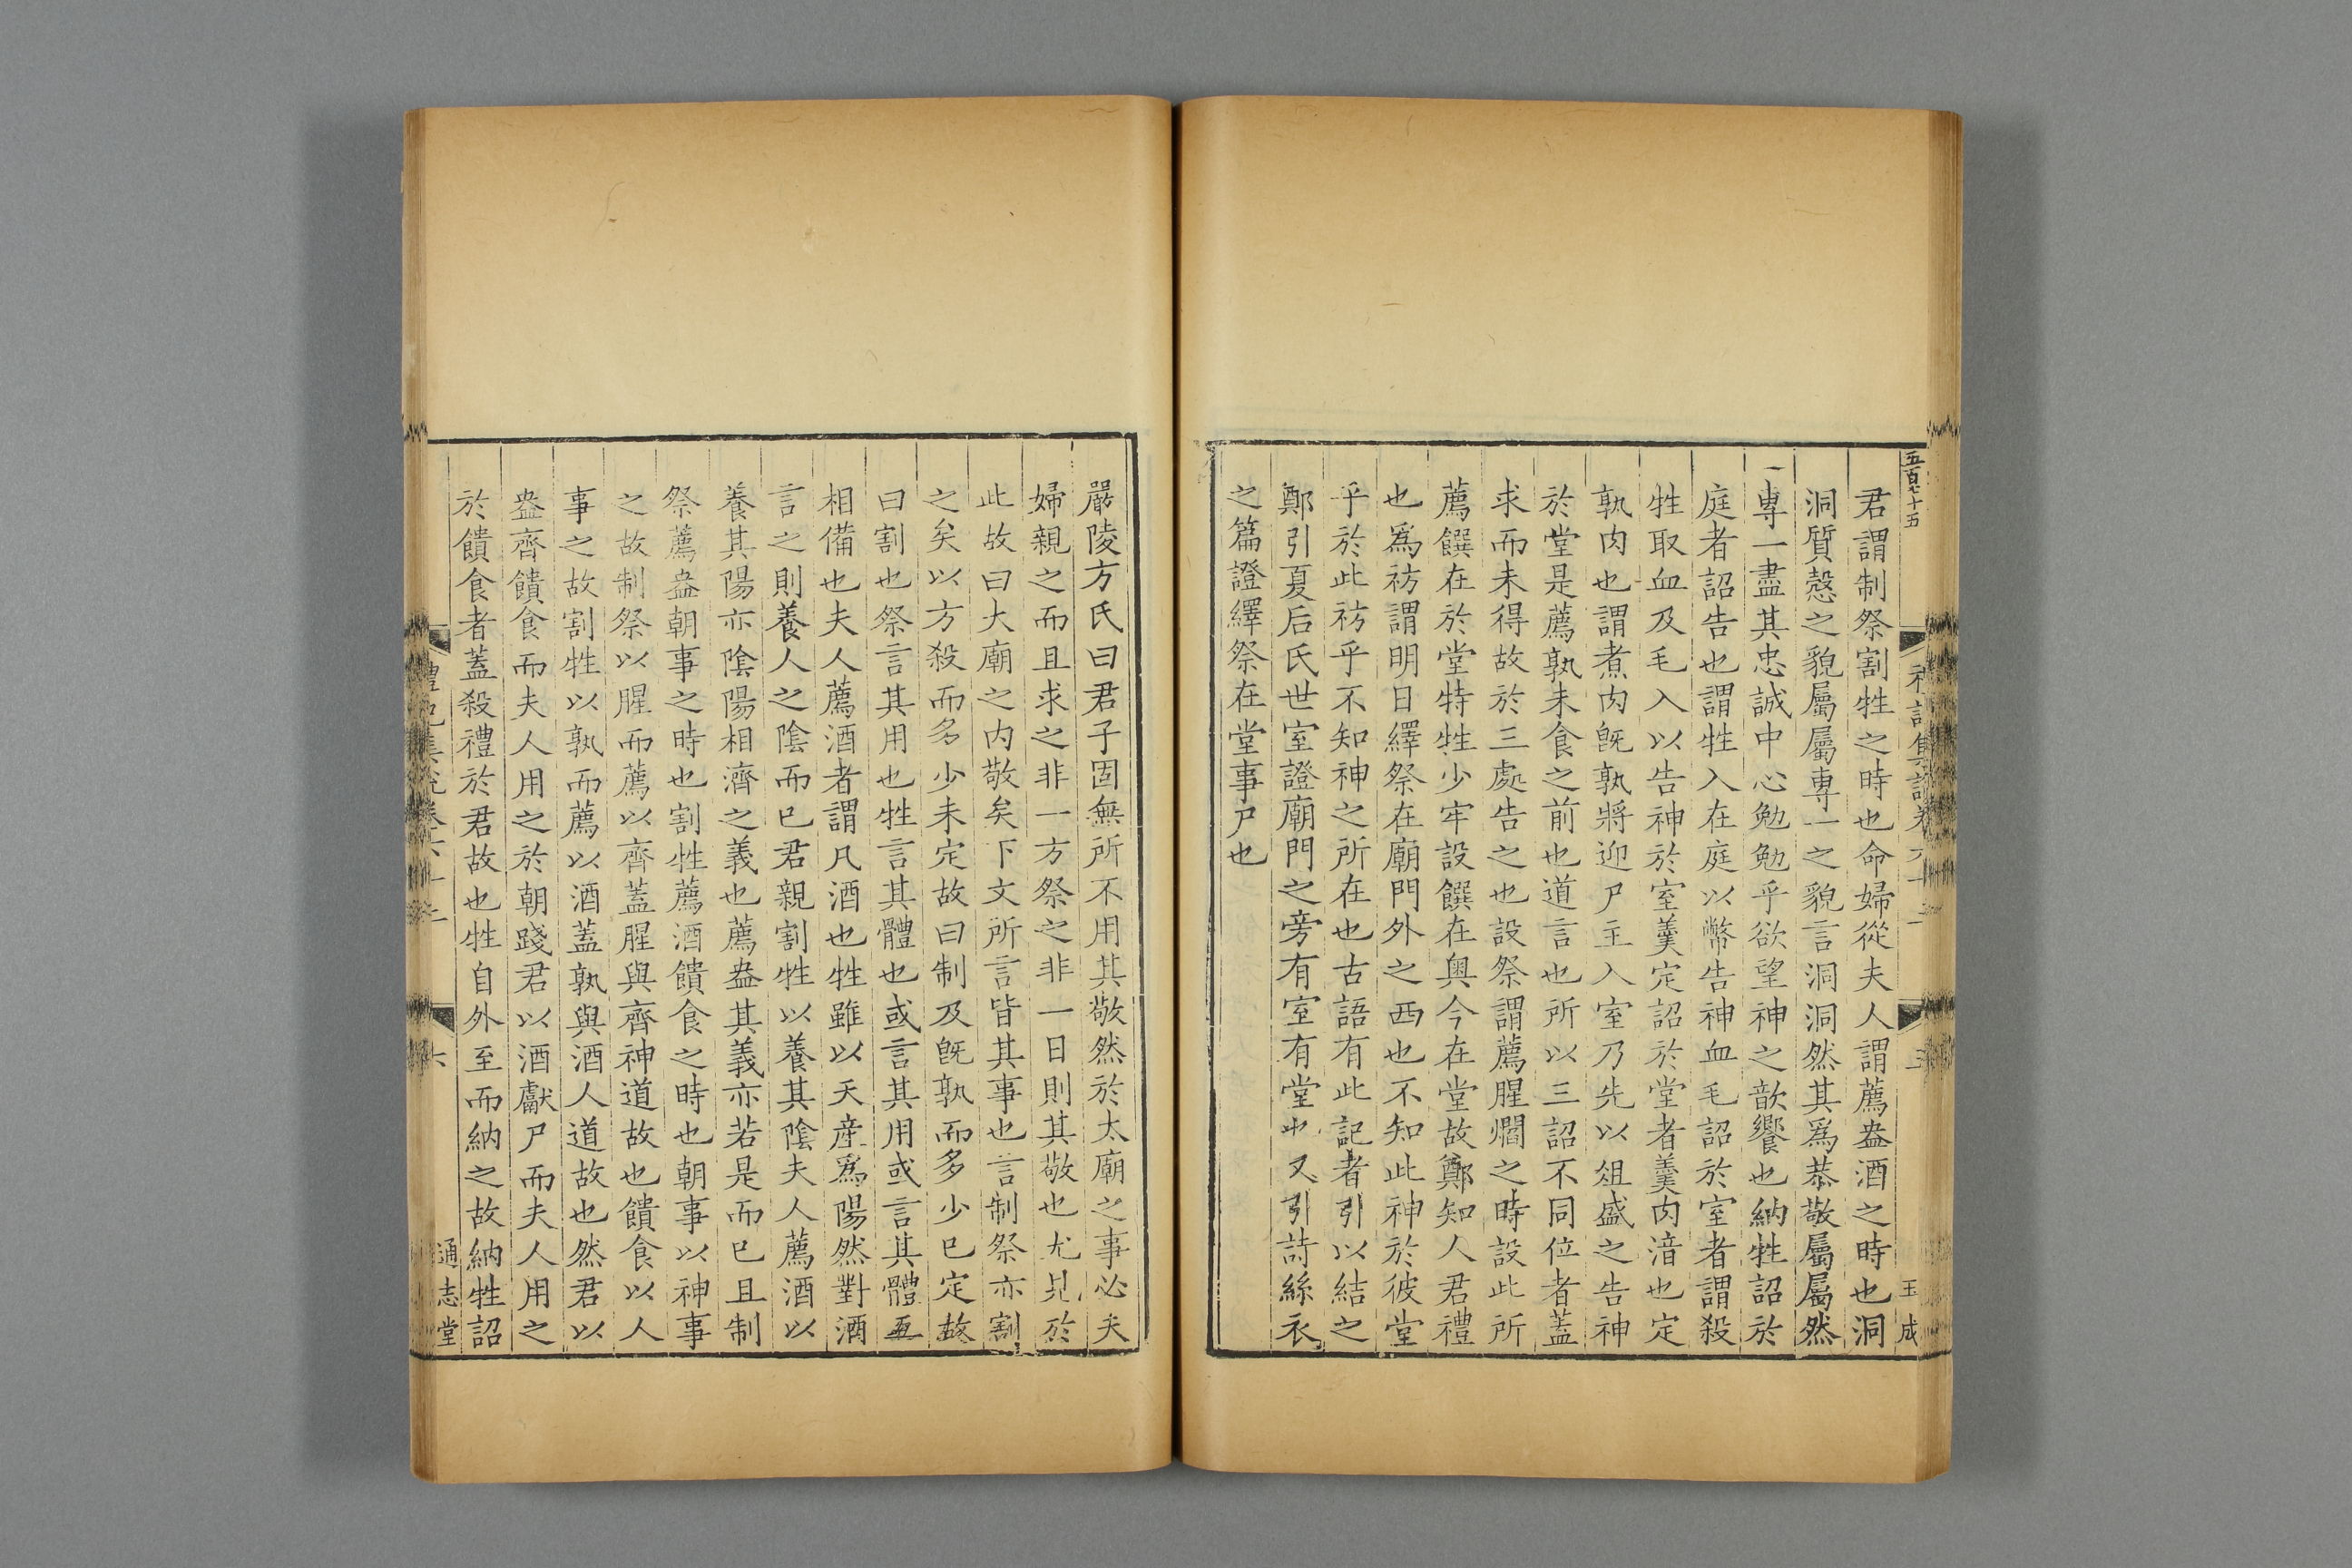 五百七十五
君謂制祭割牲之時也命婦從夫人謂薦盎酒之時也洞
洞質慤之貌屬屬專一之貌言洞洞然其爲恭敬屬屬然
一專一盡其忠誠中心勉勉乎欲望神之歆饗也納牲詔於
庭者詔告也謂牲入在庭以幣告神血毛詔於室者謂殺
牲取血及毛入以告神於室羹定詔於堂者羹肉湆也定
孰肉也謂煮肉旣孰將迎尸主入室乃先以俎盛之告神
於堂是薦孰未食之前也道言也所以三詔不同位者蓋
求而未得故於三處告之也設祭謂薦腥爓之時設此所
薦饌在於堂特牲少牢設饌在奧今在堂故鄭知人君禮
也爲祊謂明日繹祭在廟門外之西也不知此神於彼堂
乎於此祊乎不知神之所在也古語有此記者引以結之
鄭引夏后氏世室證廟門之旁有室有堂也又引詩絲衣
之篇證繹祭在堂事尸也
王成
嚴陵方氏曰君子固無所不用其敬然於太廟之事必夫
婦親之而且求之非一方祭之非一日則其敬也尤見於
此故曰大廟之内敬矣下文所言皆其事也言制祭亦割
之矣以方殺而多少未定故曰制及旣孰而多少已定故
曰割也祭言其用也牲言其體也或言其用或言其體互
相備也夫人薦酒者謂凡酒也牲雖以天産爲陽然對酒
言之則養人之陰而已君親割牲以養其陰夫人薦酒以
養其陽亦陰陽相濟之義也薦盎其義亦若是而已且制
祭薦盎朝事之時也割牲薦酒饋食之時也朝事以神事
之故制祭以腥而薦以齊蓋腥與齊神道故也饋食以人
事之故割牲以孰而薦以酒蓋孰與酒人道故也然君以
盎齊饋食而夫人用之於朝踐君以酒獻尸而夫人用之
於饋食者蓋殺禮於君故也牲自外至而納之故納牲詔
六
通志堂